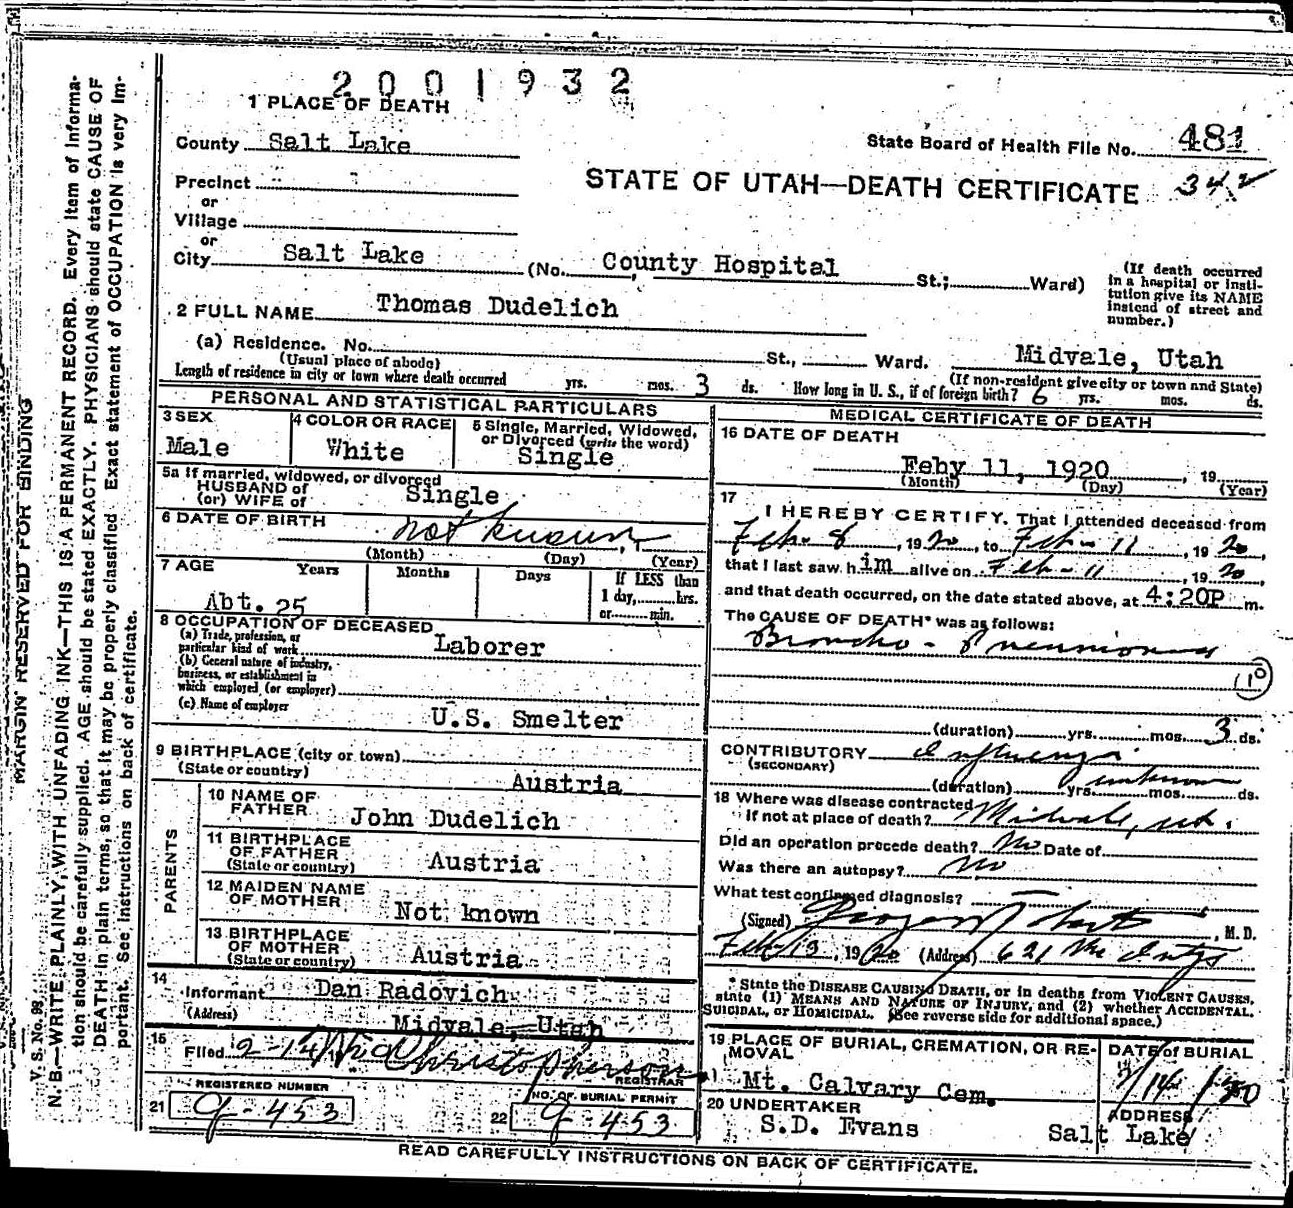 2001932
1 PLACE OF DEATH
County Salt Lake
State Board of Health File No. 481
Precinct
STATE OF UTAH—DEATH CERTIFICATE 342
or
Village
or
City Salt Lake (No. County Hospital St.; Ward)
(If death occurred in a hospital or institution give its NAME instead of street and number.)
2 FULL NAME Thomas Dudelich
(a) Residence. No. St., Ward. Midvale, Utah
(Usual place of abode) (If non-resident give city or town and State)
Length of residence in city or town where death occurred yrs. mos. 3 ds. How long in U. S., if of foreign birth? 6 yrs. mos. ds.
PERSONAL AND STATISTICAL PARTICULARS
3 SEX
Male
4 COLOR OR RACE
White
5 Single, Married, Widowed, or Divorced (write the word)
Single
5a If married, widowed, or divorced
HUSBAND of
(or) WIFE of Single
6 DATE OF BIRTH not known
(Month) (Day) (Year)
7 AGE Years Months Days If LESS than
1 day, hrs.
or min.
Abt. 25
8 OCCUPATION OF DECEASED
(a) Trade, profession, or
particular kind of work Laborer
(b) General nature of industry,
business, or establishment in
which employed (or employer)
(c) Name of employer
U.S. Smelter
9 BIRTHPLACE (city or town)
(State or country) Austria
PARENTS
10 NAME OF
FATHER John Dudelich
11 BIRTHPLACE
OF FATHER
(State or country) Austria
12 MAIDEN NAME
OF MOTHER Not known
13 BIRTHPLACE
OF MOTHER
(State or country) Austria
14
Informant Dan Radovich
(Address) Midvale, Utah
15
Filed 2-14 Christopherson
REGISTRAR
REGISTERED NUMBER
21 9-453
NO. OF BURIAL PERMIT
22 9-453
MEDICAL CERTIFICATE OF DEATH
16 DATE OF DEATH
Feby 11, 1920, 19
(Month) (Day) (Year)
17
I HEREBY CERTIFY, That I attended deceased from
Feb. 8, 1920, to Feb - 11, 1920,
that I last saw him alive on Feb - 11, 1920,
and that death occurred, on the date stated above, at 4:20P m.
The CAUSE OF DEATH* was as follows:
Broncho - Pneumonia
10
(duration) yrs. mos. 3 ds.
CONTRIBUTORY Influenza
(SECONDARY) unknown
(duration) yrs. mos. ds.
18 Where was disease contracted
If not at place of death? Midvale, ut.
Did an operation precede death? No Date of
Was there an autopsy? No
What test confirmed diagnosis? —
(Signed) Roberts, M. D.
Feb 13, 1920 (Address) 621
* State the DISEASE CAUSING DEATH, or in deaths from VIOLENT CAUSES,
state (1) MEANS AND NATURE OF INJURY, and (2) whether ACCIDENTAL,
SUICIDAL, or HOMICIDAL. (See reverse side for additional space.)
19 PLACE OF BURIAL, CREMATION, OR RE-
MOVAL
Mt. Calvary Cem.
DATE of BURIAL
2/14/20
20 UNDERTAKER
S.D. Evans
ADDRESS
Salt Lake
READ CAREFULLY INSTRUCTIONS ON BACK OF CERTIFICATE.
MARGIN RESERVED FOR BINDING
V. S. No. 98
N. B.—WRITE PLAINLY, WITH UNFADING INK—THIS IS A PERMANENT RECORD. Every item of informa-
tion should be carefully supplied. AGE should be stated EXACTLY. PHYSICIANS should state CAUSE OF
DEATH in plain terms, so that it may be properly classified. Exact statement of OCCUPATION is very im-
portant. See instructions on back of certificate.